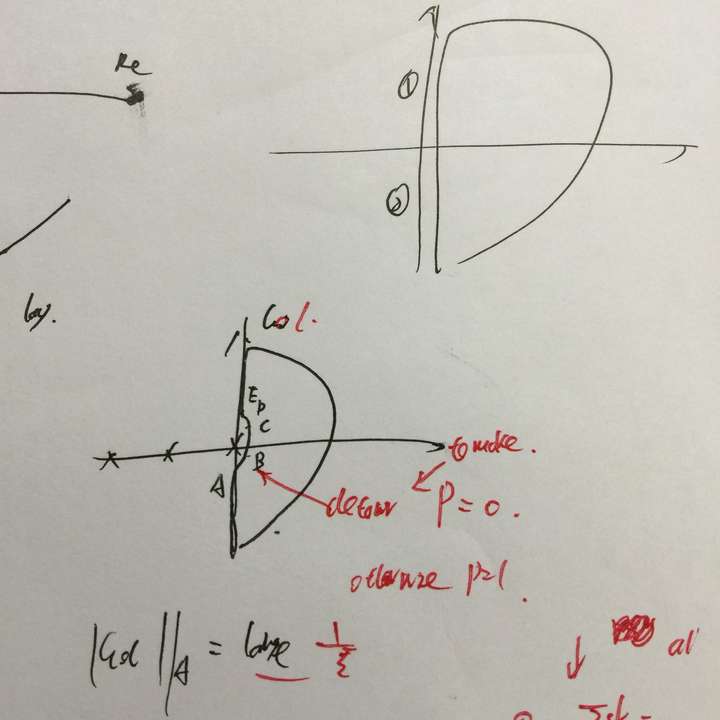 Re
①
②
by.
Gol.
E
D
C
B
A
to make.
detour P=0.
otherwise P=1.
|Gol||A = large 1/ε
al